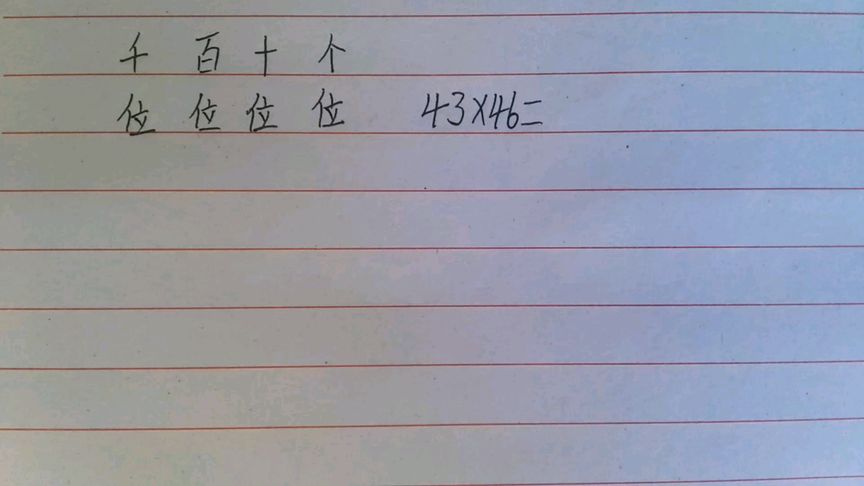 千 百 十 个
位 位 位 位 43×46=